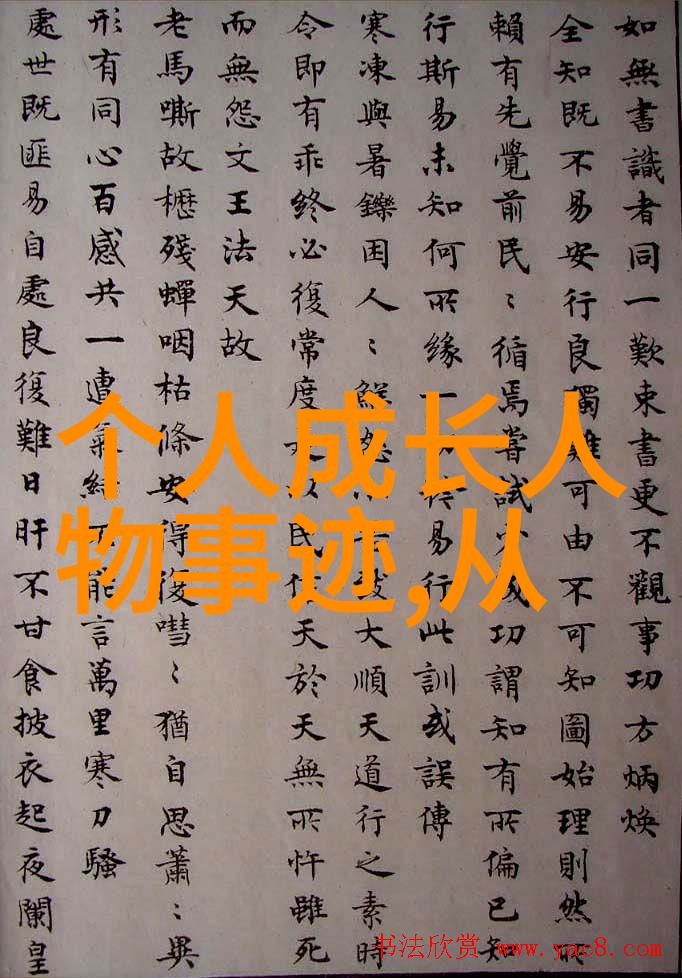 如無書識者同一歎束書更不觀事功方炳煥
全知既不易安行良獨難可由不可知圖始理則然所
賴有先覺前民〻循焉嘗試少成功謂知有所偏已知
行斯易未知何所緣一易行此訓或誤傳
寒凍與暑鑠困人〻鮮怨大順天道行之素時
令即有乖終必復常度以民信天於天無所忤雖死
而無怨文王法天故
老馬嘶故櫪殘蟬咽枯條安得復嘒〻猶自思蕭〻異
形有同心百感共一遭氣結不能言萬里寒刀騷
處世既匪易自處良復難日旰不甘食披衣起夜闌皇
个人成长人
物事迹,从
书法欣赏 www.yac8.com